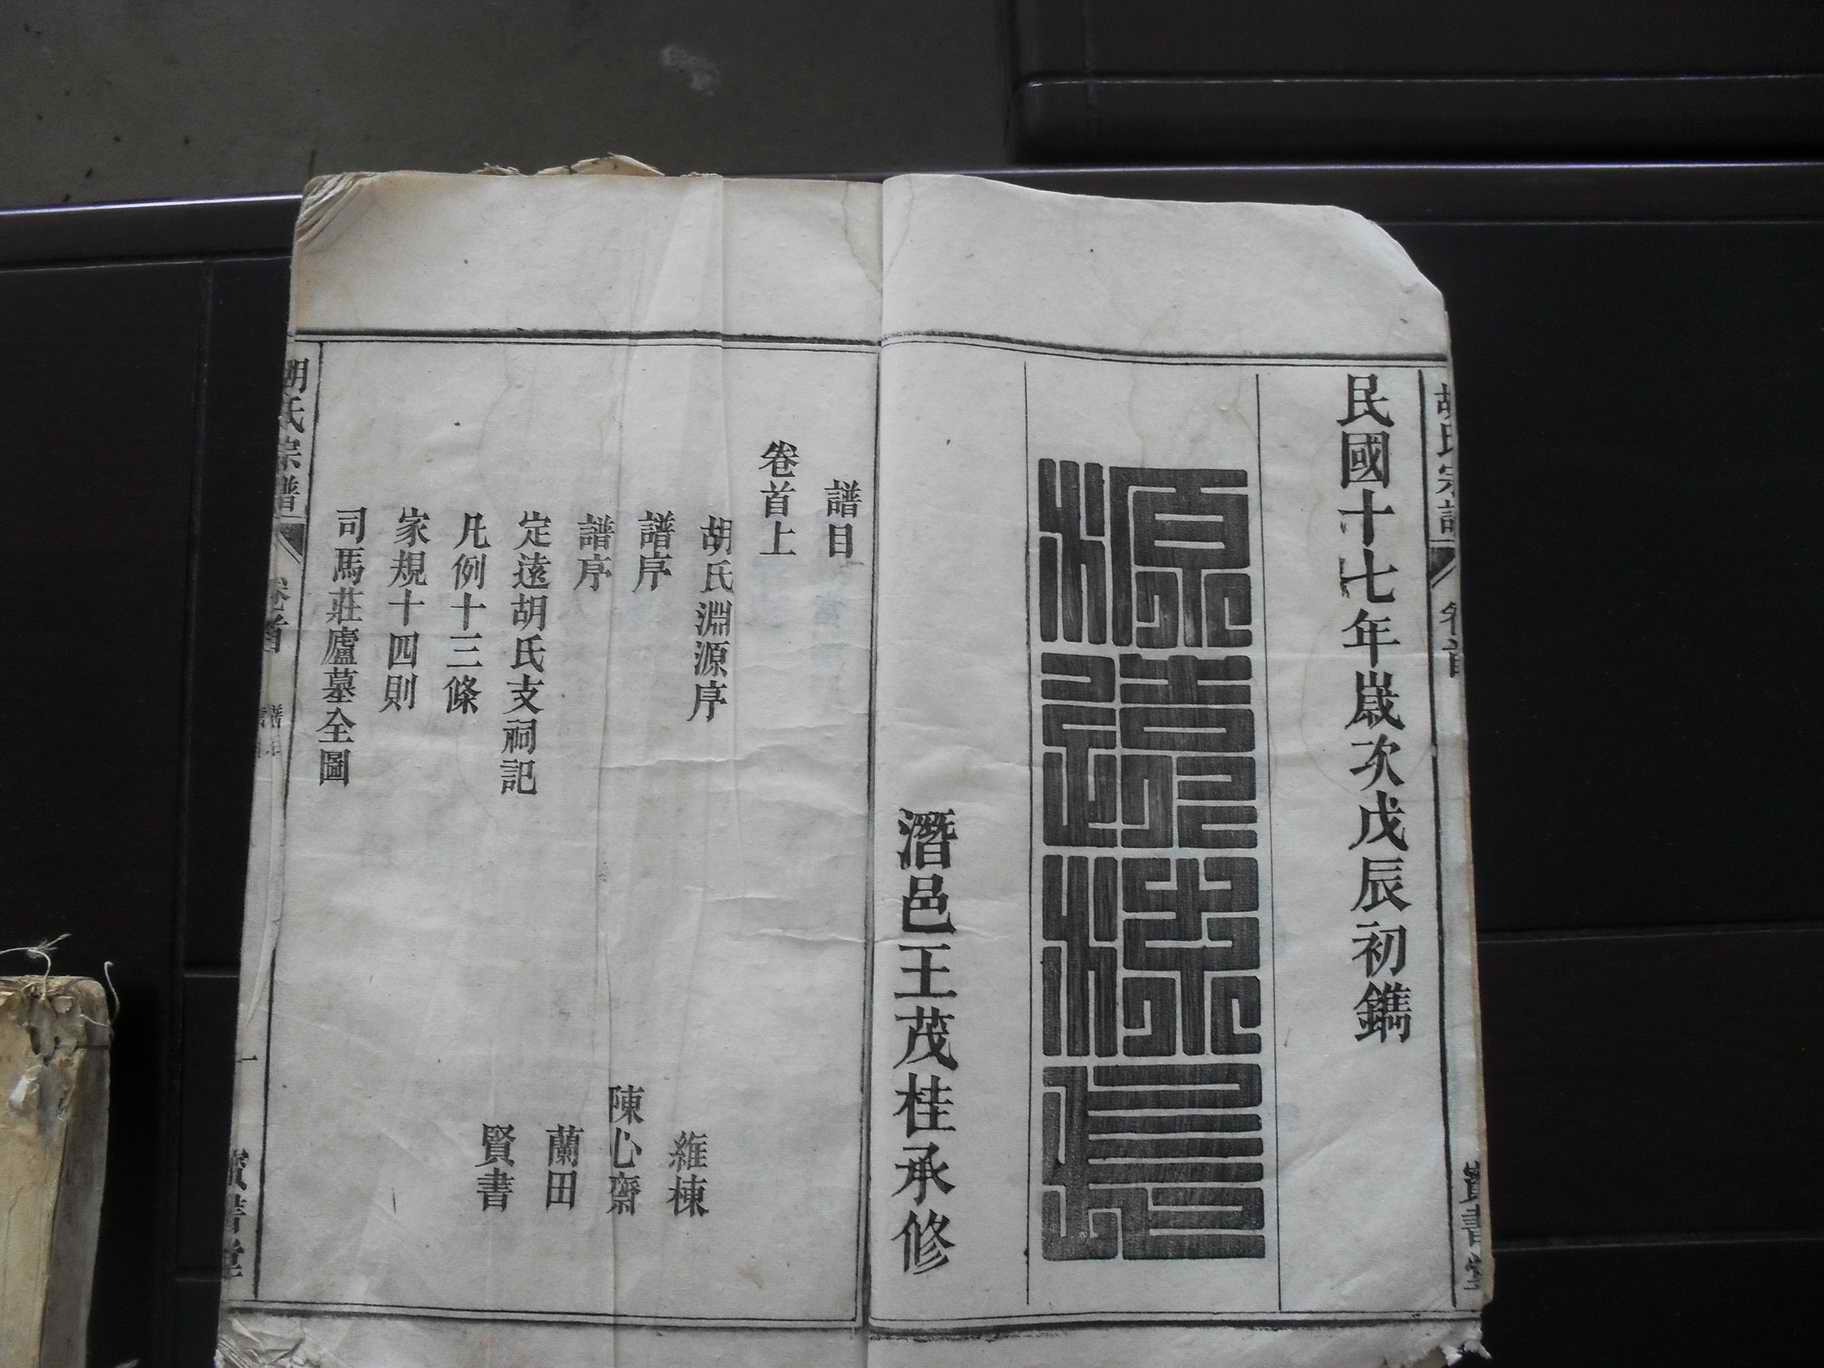 胡氏宗譜
卷首
寶書堂
民國十七年歲次戊辰初鐫
源遠流長
潛邑王茂桂承修
譜目
卷首上
胡氏淵源序 維棟
譜序 陳心齋
譜序 蘭田
定遠胡氏支祠記 賢書
凡例十三條
家規十四則
司馬莊廬墓全圖
胡氏宗譜
卷首
譜目
一
寶書堂